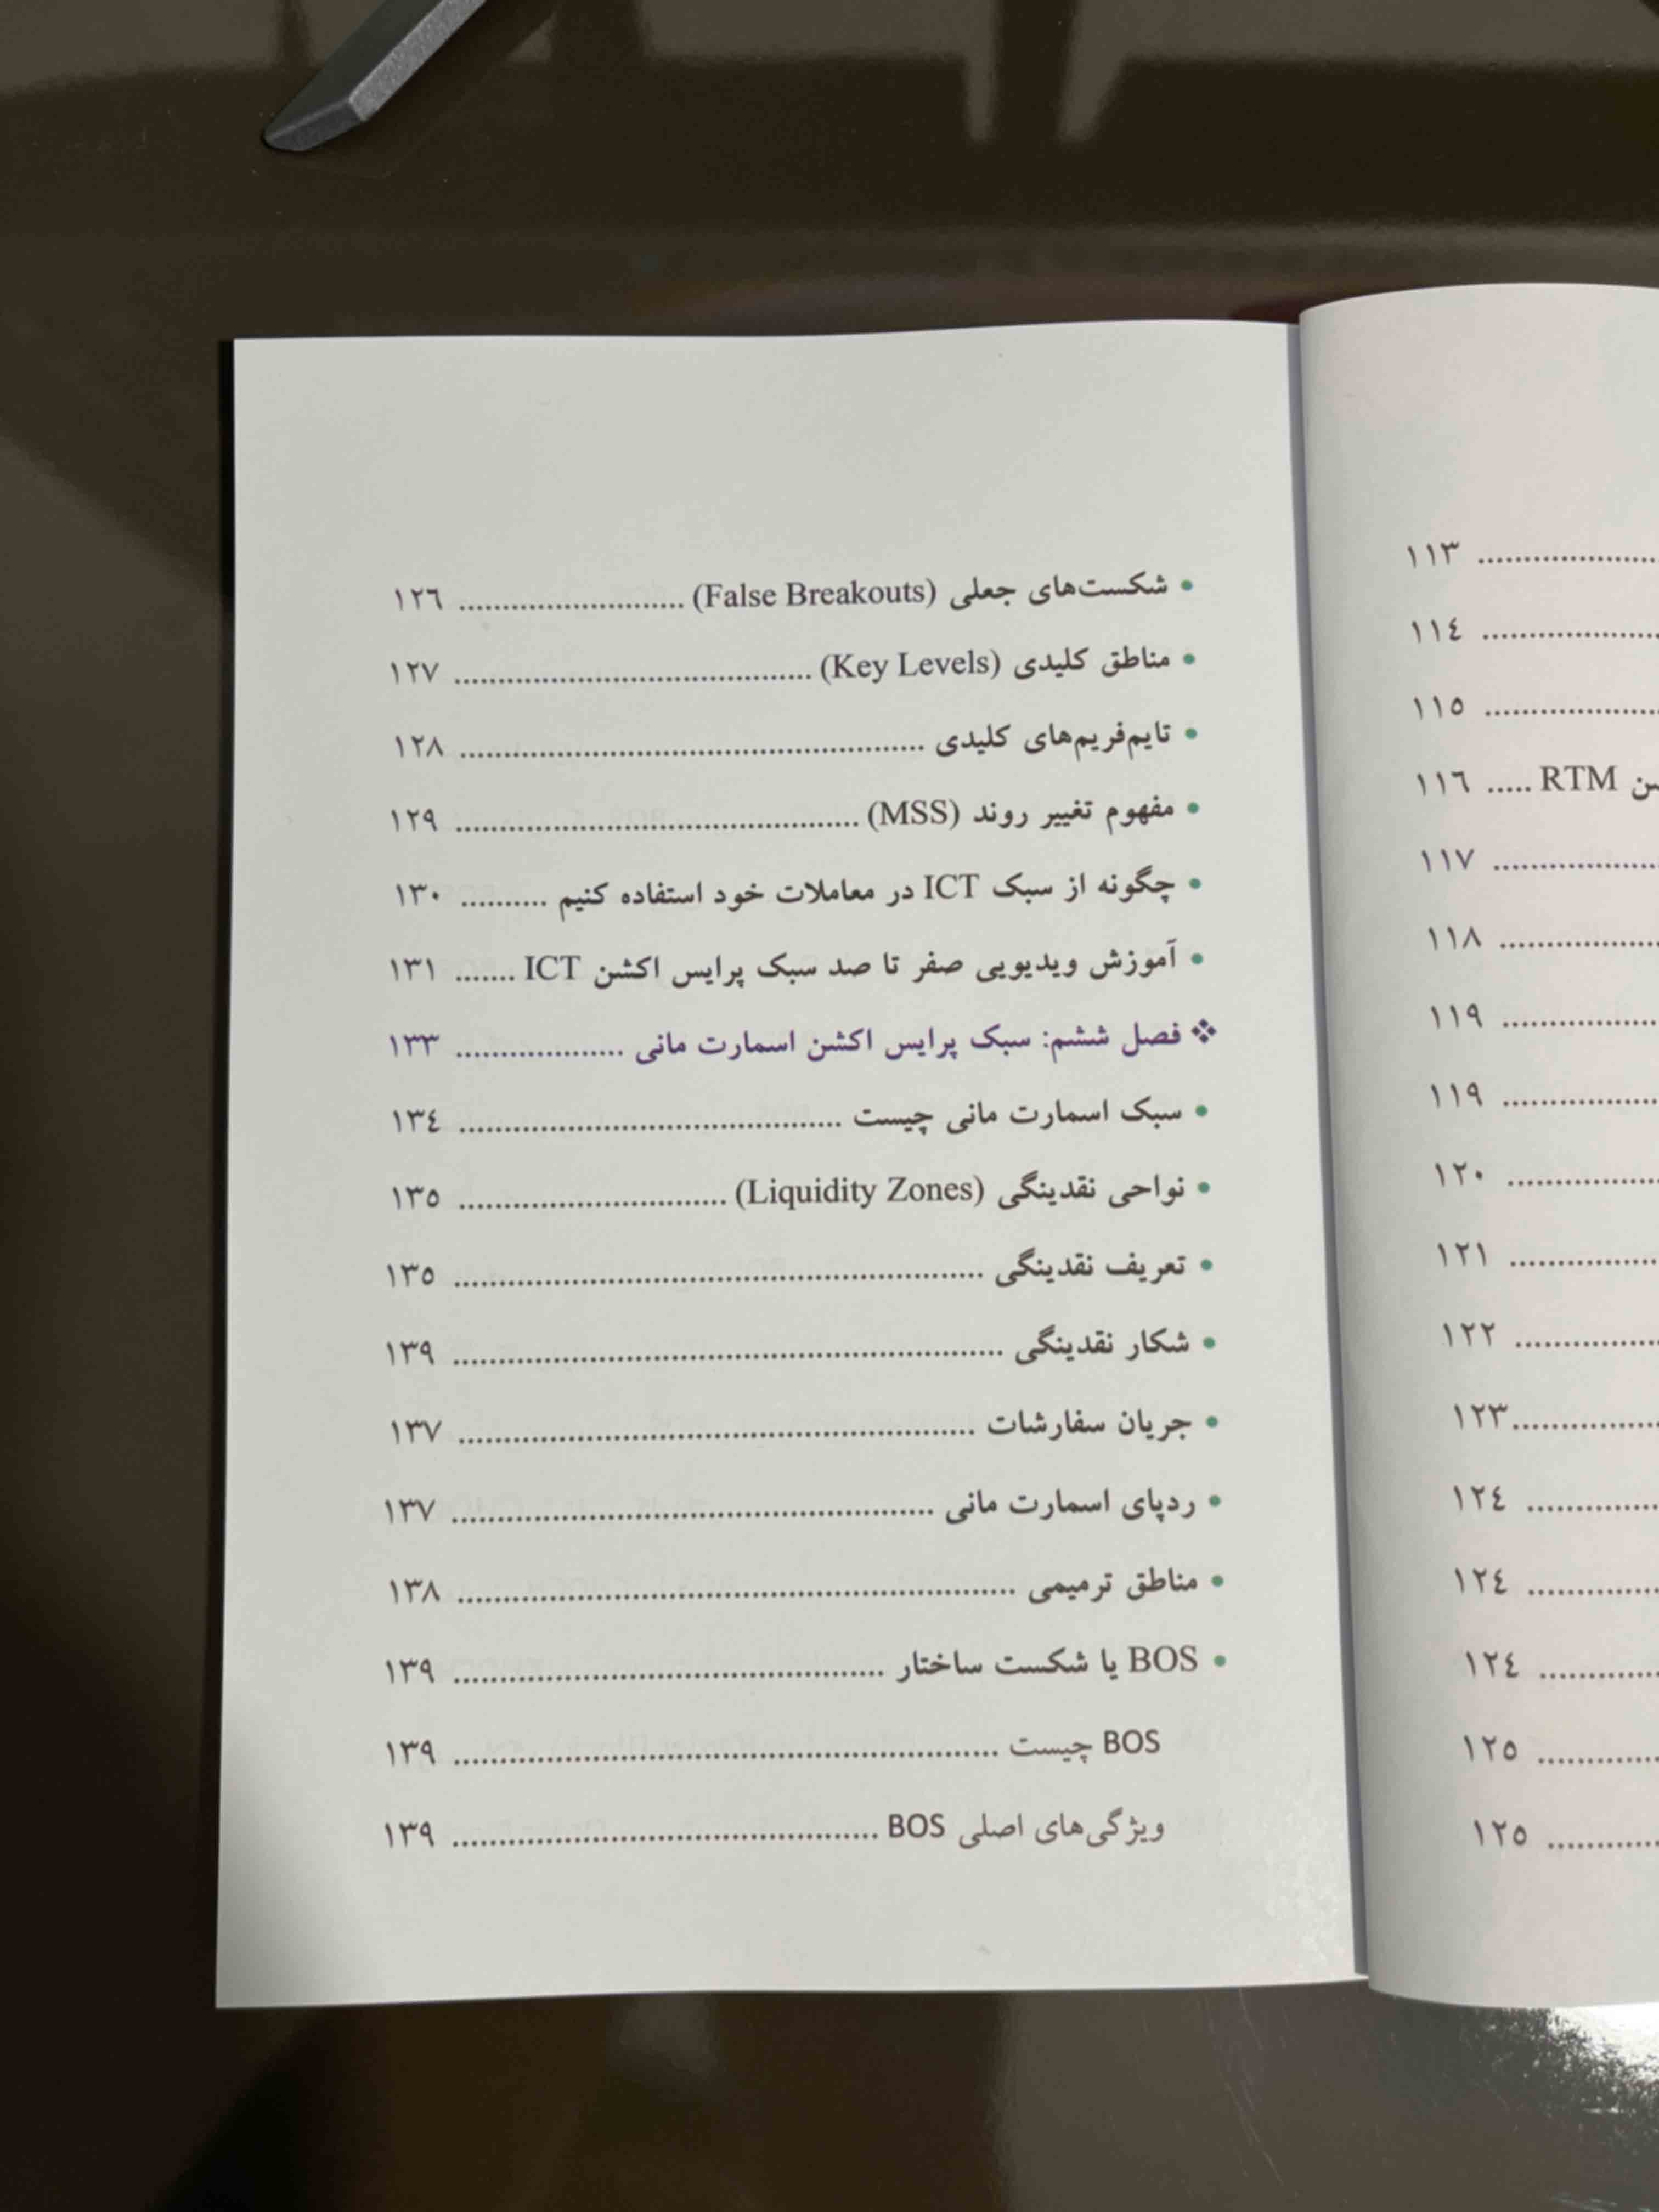 ۱۱۳ ....................
۱۱٤ ....................
۱۱٥ ....................
RTM ..... ۱۱٦
۱۱۷ ....................
۱۱۸ ....................
۱۱۹ ....................
۱۱۹ ....................
۱۲۰ ....................
۱۲۱ ....................
۱۲۲ ....................
۱۲۳....................
۱۲٤ ....................
۱۲٤ ....................
۱۲٤ ....................
۱۲٥ ....................
۱۲٥ ....................
• شکست‌های جعلی (False Breakouts) .......................... ۱۲٦
• مناطق کلیدی (Key Levels) ......................................... ۱۲۷
• تایم‌فریم‌های کلیدی ..................................................... ۱۲۸
• مفهوم تغییر روند (MSS) .............................................. ۱۲۹
• چگونه از سبک ICT در معاملات خود استفاده کنیم .......... ۱۳۰
• آموزش ویدیویی صفر تا صد سبک پرایس اکشن ICT ....... ۱۳۱
❖ فصل ششم: سبک پرایس اکشن اسمارت مانی ................... ۱۳۳
• سبک اسمارت مانی چیست ............................................ ۱۳٤
• نواحی نقدینگی (Liquidity Zones) ............................... ۱۳٥
• تعریف نقدینگی ............................................................. ۱۳٥
• شکار نقدینگی ............................................................... ۱۳۹
• جریان سفارشات ........................................................... ۱۳۷
• ردپای اسمارت مانی ....................................................... ۱۳۷
• مناطق ترمیمی ................................................................ ۱۳۸
• BOS یا شکست ساختار ................................................. ۱۳۹
BOS چیست .............................................................. ۱۳۹
ویژگی‌های اصلی BOS ................................................. ۱۳۹